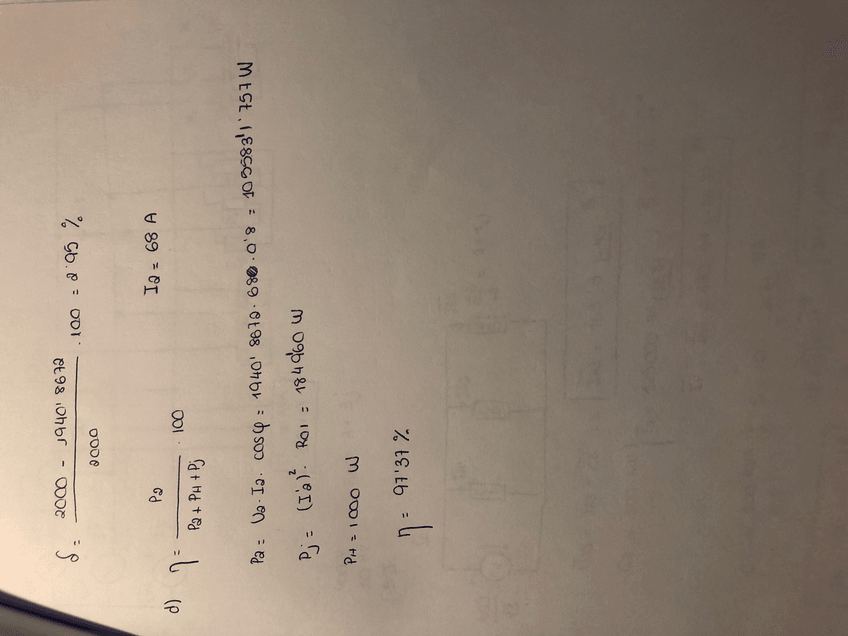 δ = (2000 - 1940'8672) / 2000 · 100 = 2'95 %
d) η = P2 / (P2 + PH + Pj) · 100 I2 = 68 A
P2 = U2 · I2 · cosφ = 1940'8672 · 680 · 0'8 = 1055831'757 W
Pj = (I'2)² · R01 = 184960 W
PH = 1000 W
η = 97'37 %